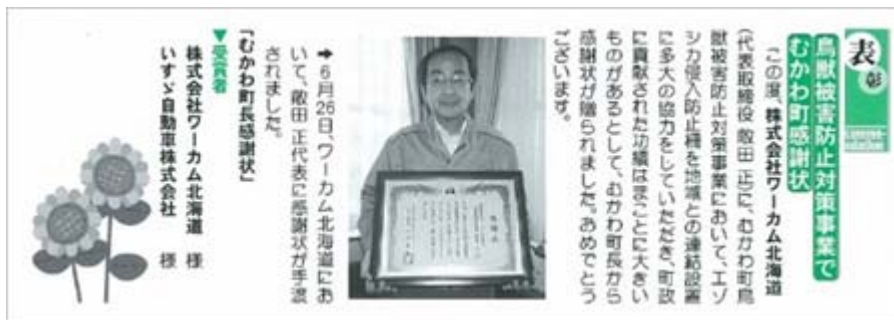 表彰
Commendation
鳥獣被害防止対策事業で
むかわ町感謝状
この度、株式会社ワーカム北海道
(代表取締役 敬田 正)に、むかわ町鳥
獣被害防止対策事業において、エゾ
シカ侵入防止柵を地域との連結設置
に多大の協力をしていただき、町政
に貢献された功績はまことに大きい
ものがあるとして、むかわ町長から
感謝状が贈られました。おめでとう
ございます。
➡6月26日、ワーカム北海道にお
いて、敬田 正代表に感謝状が手渡
されました。
「むかわ町長感謝状」
▼受賞者
株式会社ワーカム北海道 様
いすゞ自動車株式会社 様